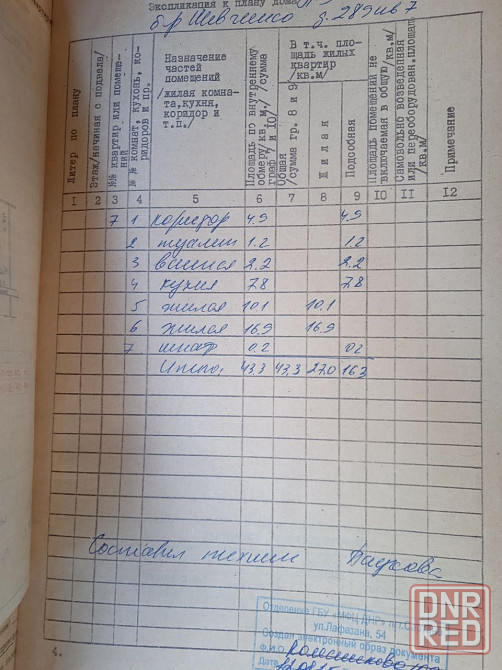 Экспликация к плану дома
б-р Шевченко д. 28 экв 7
Литер по плану
Этаж/начиная с подвала/
№№ квартир или помещений
№№ комнат, кухонь, коридоров и пр.
Назначение
частей
помещений
/жилая комна-
та, кухня,
коридор и
т.п./
Площадь по внутреннему
обмеру/кв.м./ /сумма
граф 7 и 10/
В т.ч. пло-
щадь жилых
квартир
/кв.м/
Общая
/сумма гр. 8 и 9
Жилая
Подсобная
Площадь помещений не
включаемая в общую /кв.м/
Самовольно возведенная
или переоборудован.площадь
/кв.м/
Примечание
I 2 3 4 5 6 7 8 9 10 II I2
7 1 коридор 4.9 4.9
2 туалет 1.2 1.2
3 ванная 2.2 2.2
4 кухня 7.8 7.8
5 жилая 10.1 10.1
6 жилая 16.9 16.9
7 шкаф 0.2 0.2
Итого: 43,3 43,3 27,0 16,3
Составил техник
Отделение ГБУ «МФЦ ДНР»
ул.Лафазана, 54
Создан электронный образ документа
Ф.И.О.
Дата
DNR
RED